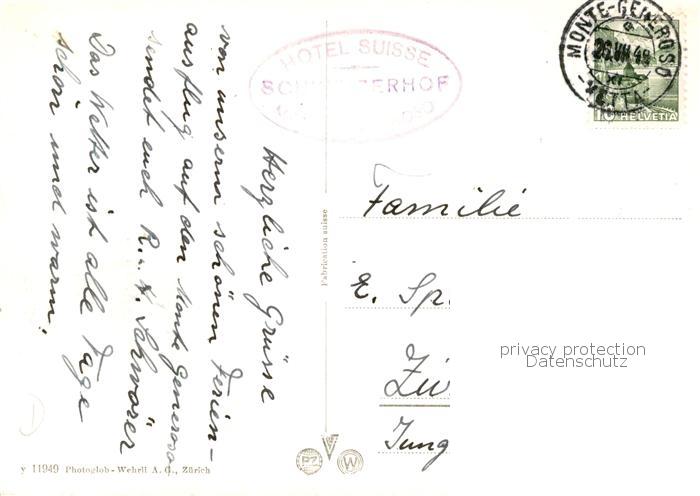 Herzliche Grüsse
von unserm schönen Ferien-
ausflug auf den Monte Generoso
sendet euch R. u. H. Schwörer
Das Wetter ist alle Tage
schön und warm.
HOTEL SUISSE
MONTE-GENEROSO
26.VII.49
XI
-VETTA-
10 HELVETIA
Familie
E. Sp.
Zü
Jung
privacy protection
Datenschutz
Fabrication suisse
PZ
W
y 11949 Photoglob-Wehrli A. G., Zürich